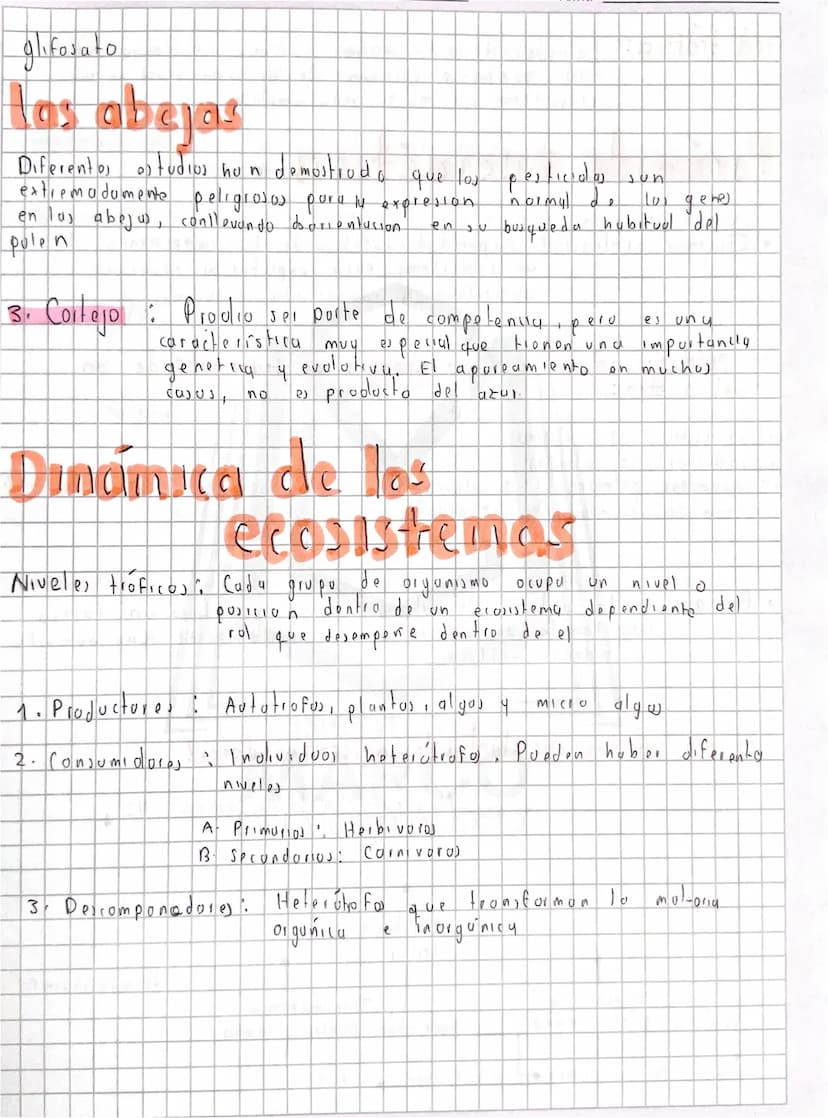 glifosato
Las abejas
Diferentes estudios han demostrado que los pesticidas son
extremadamente peligrosos para la expresion normal de los genes
en las abejas, conllevando desorientacion en su busqueda habitual del
polen
3. Cortejo : Prodia ser parte de competencia, pero es una
caracteristica muy especial que tienen una importancia
genetica y evolutiva. El apareamiento en muchos
casos, no es producto del azar.
Dinámica de los
ecosistemas
Niveles tróficos: Cada grupo de organismo ocupa un nivel o
posicion dentro de un ecosistema dependiente del
rol que desempeñe dentro de el
1. Productores : Autotrofos, plantas, algas y micro algas
2. Consumidores : Individuos heterótrofos. Pueden haber diferente
niveles
A. Primarios : Herbivoros
B. Secondarios: Carnivoros
3. Descomponedores: Heterótrofos que transforman la materia
orgánica e inorgánica